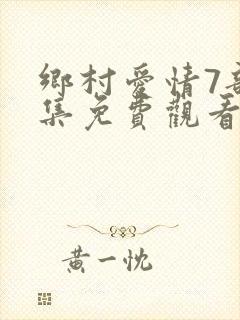 鄉村愛情7部
集免費觀看
黃一忱